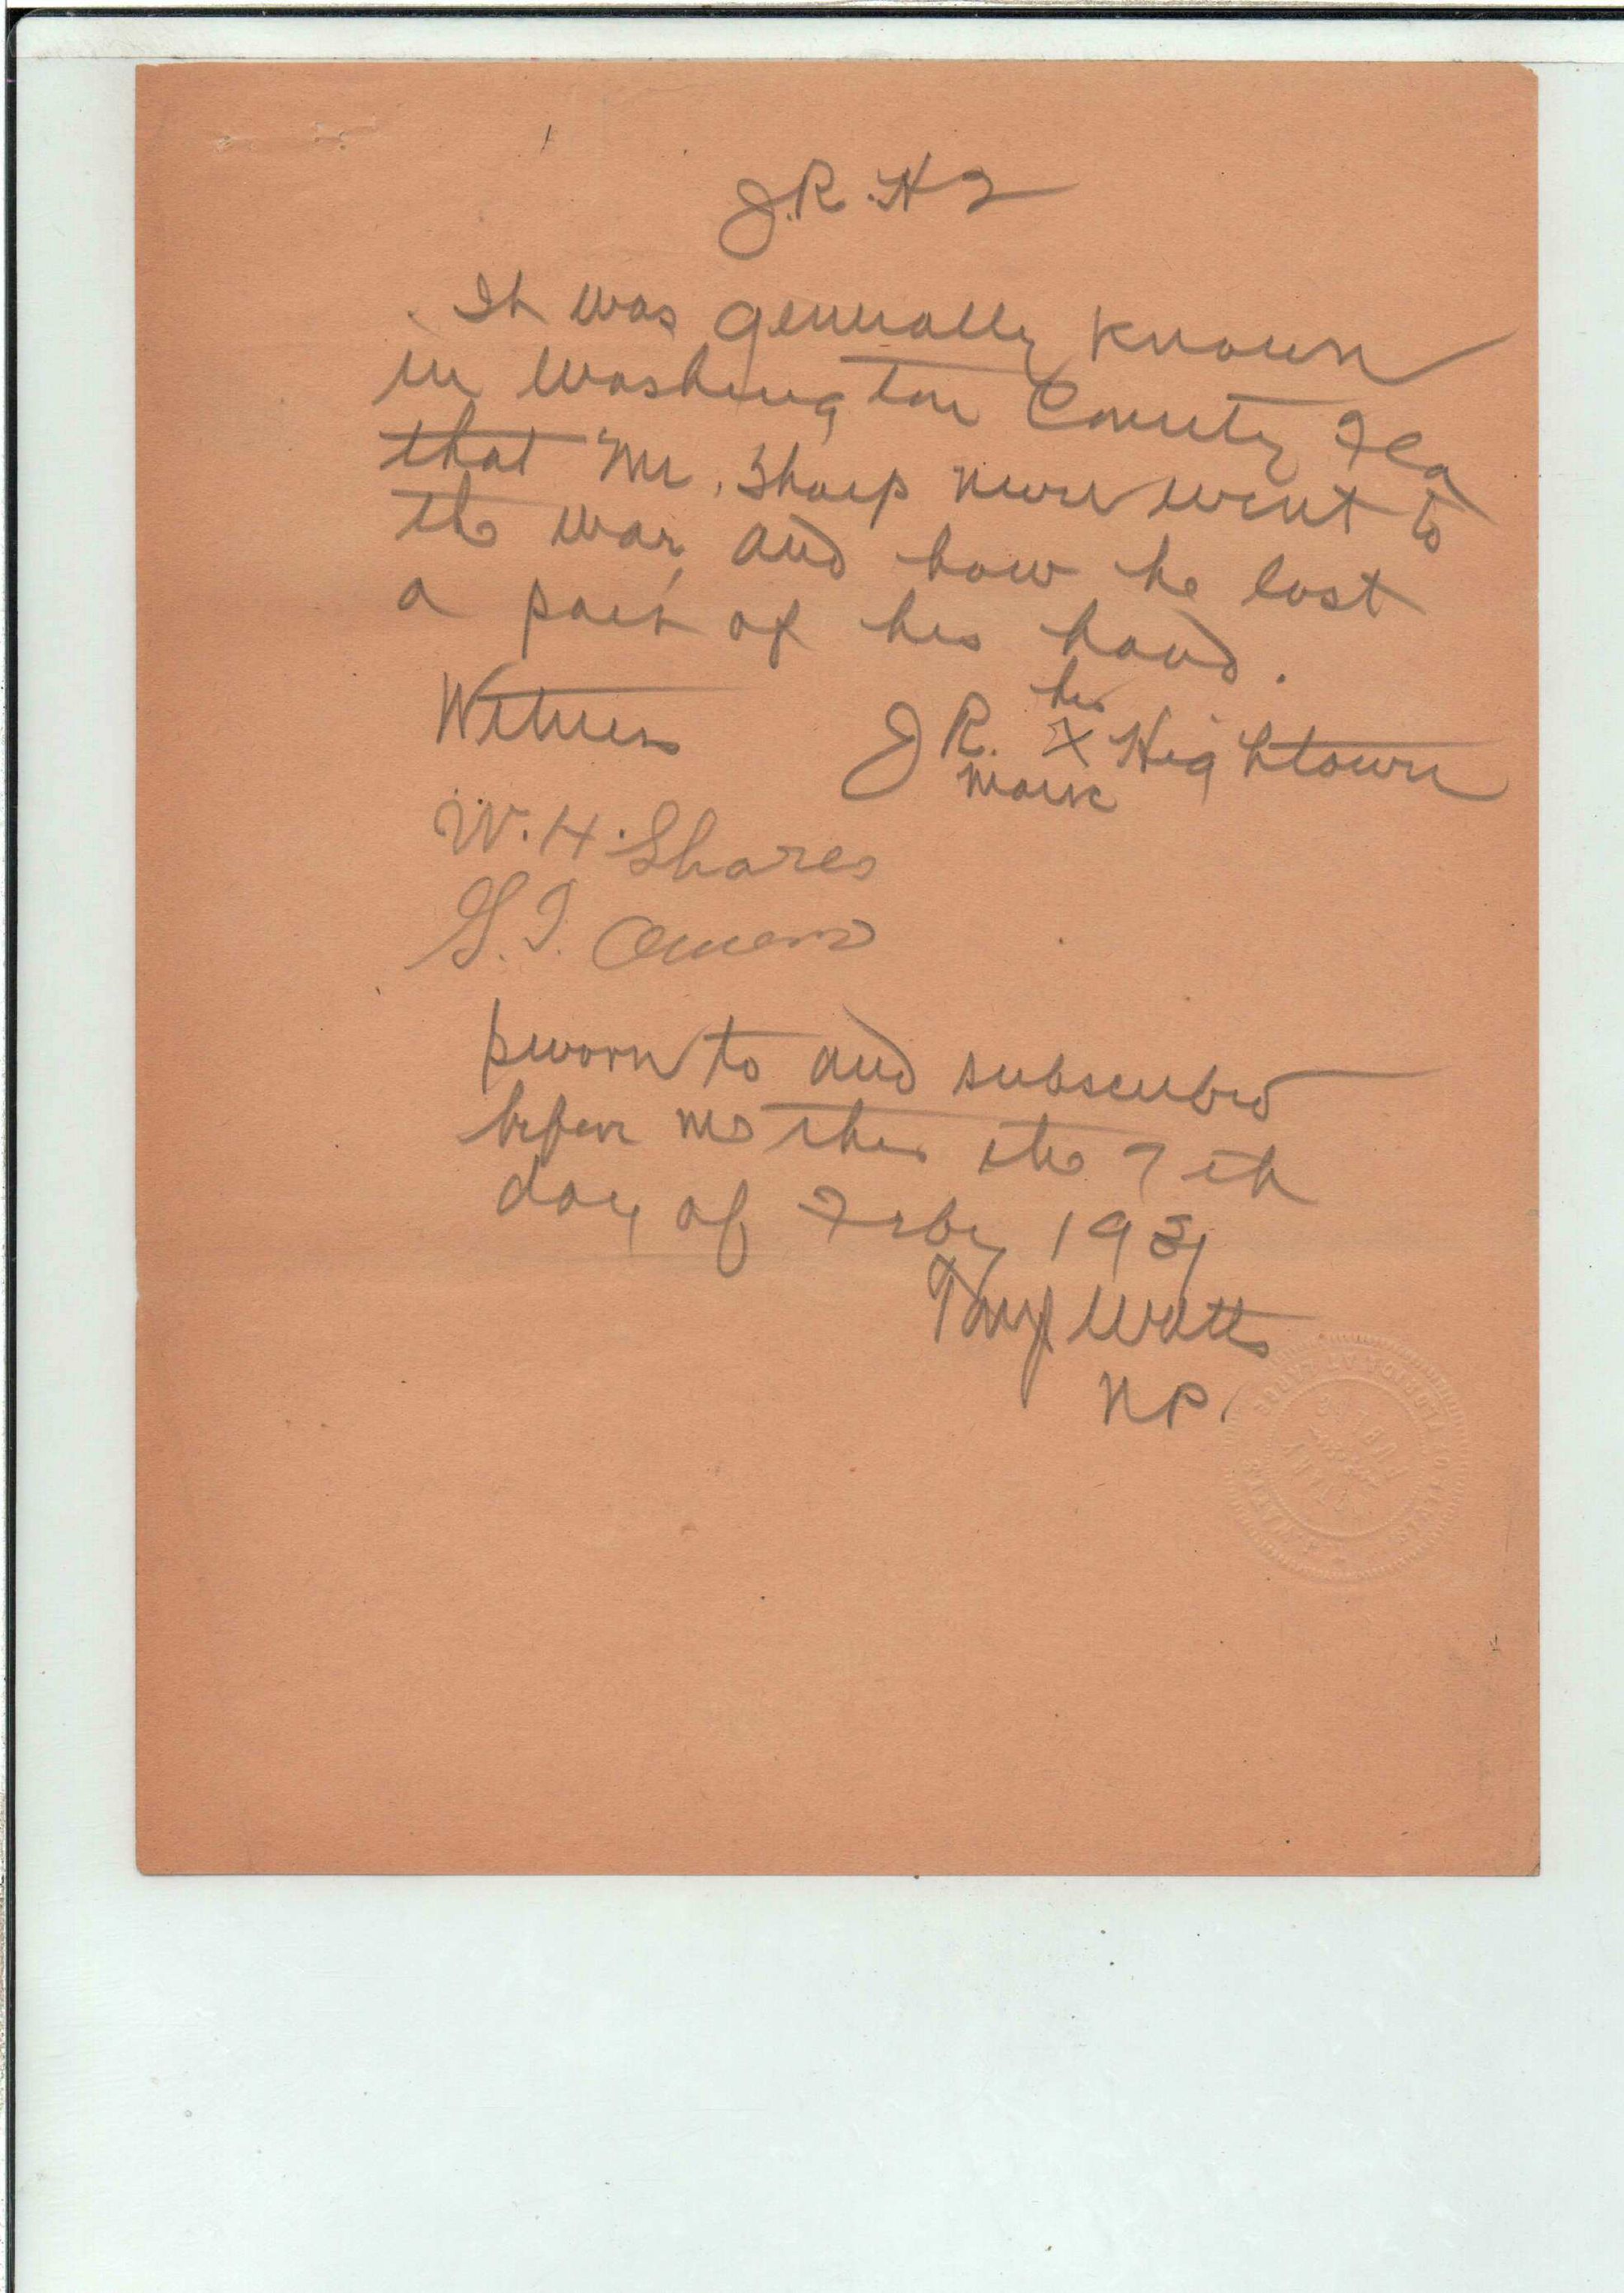 J.R.H 2
It was generally known
in Washington County Fla
that Mr. Sharp never went to
the war, and how he lost
a part of his hand.
his
Witness J R. X Hightower
mark
W. H. Shares
G. I. Owens
Sworn to and subscribed
before me this the 7th
day of Feby 1931
Watts
N P.
NOTARY PUBLIC
STATE OF FLORIDA AT LARGE